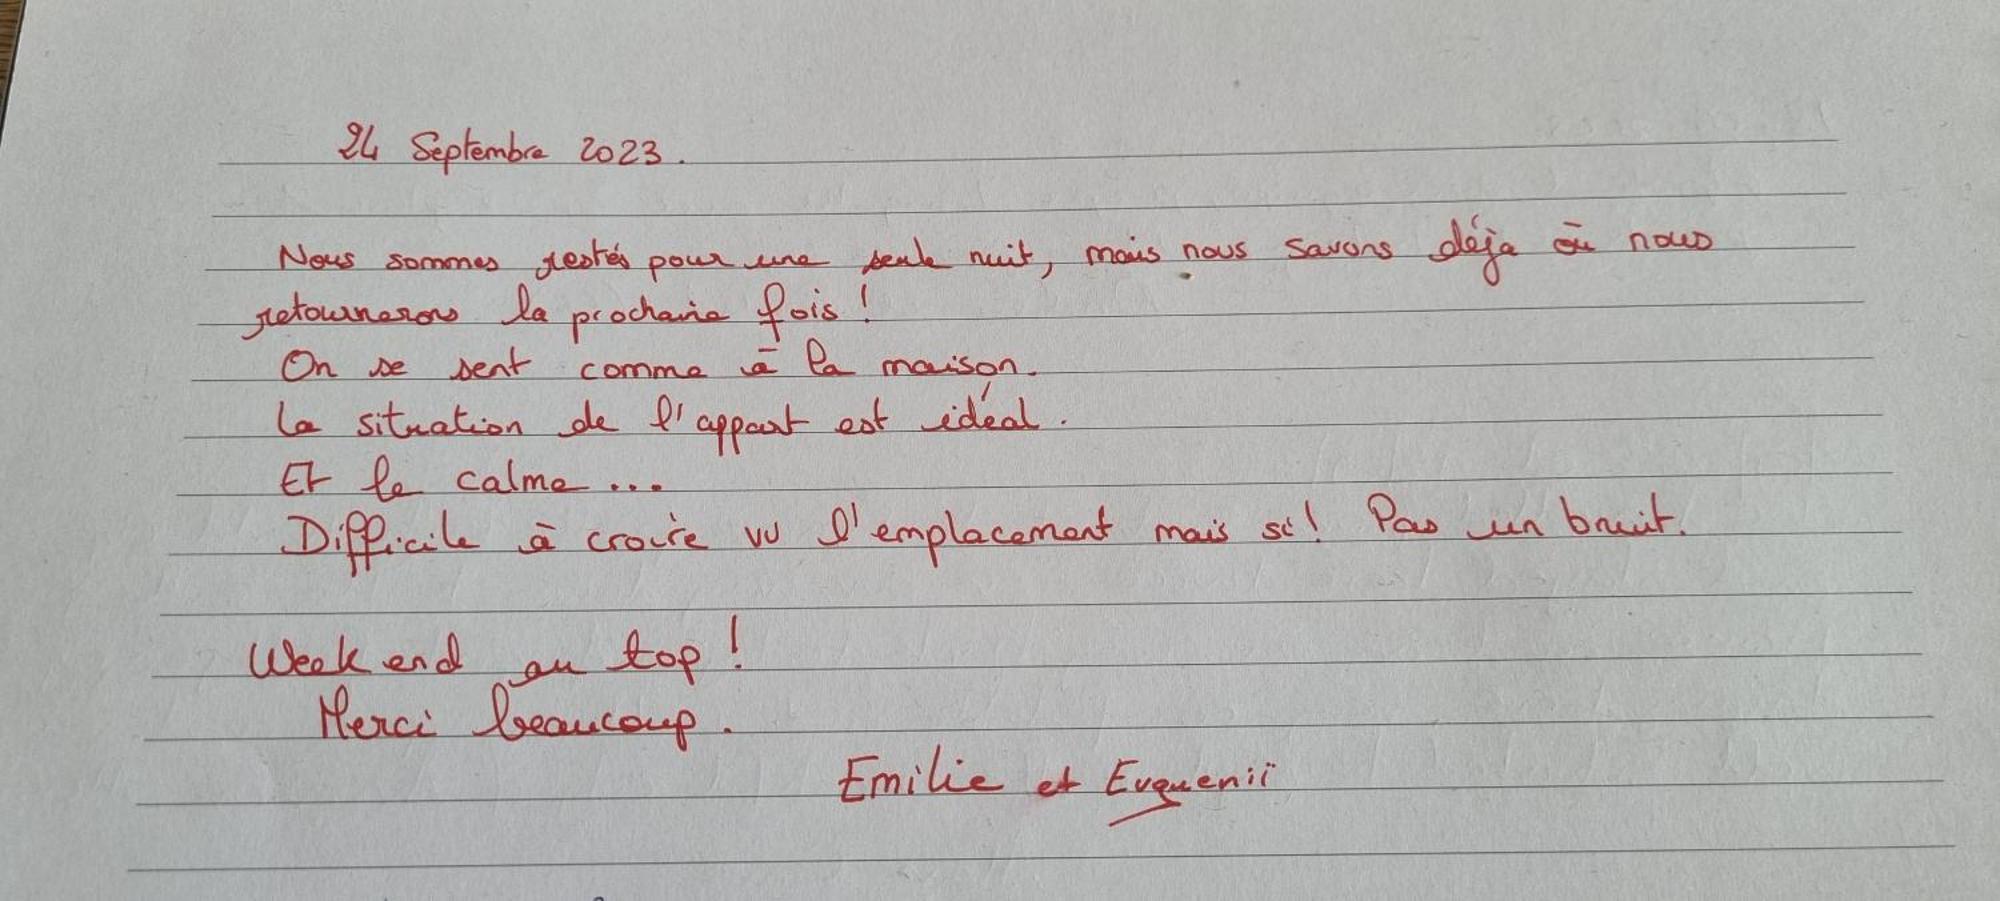 24 Septembre 2023.
Nous sommes restés pour une seule nuit, mais nous savons déja où nous
retournerons la prochaine fois !
On se sent comme à la maison.
La situation de l'appart est idéal.
Et le calme ...
Difficile à croire vu l'emplacement mais si ! Pas un bruit.
Week end au top !
Merci beaucoup.
Emilie et Evguenii